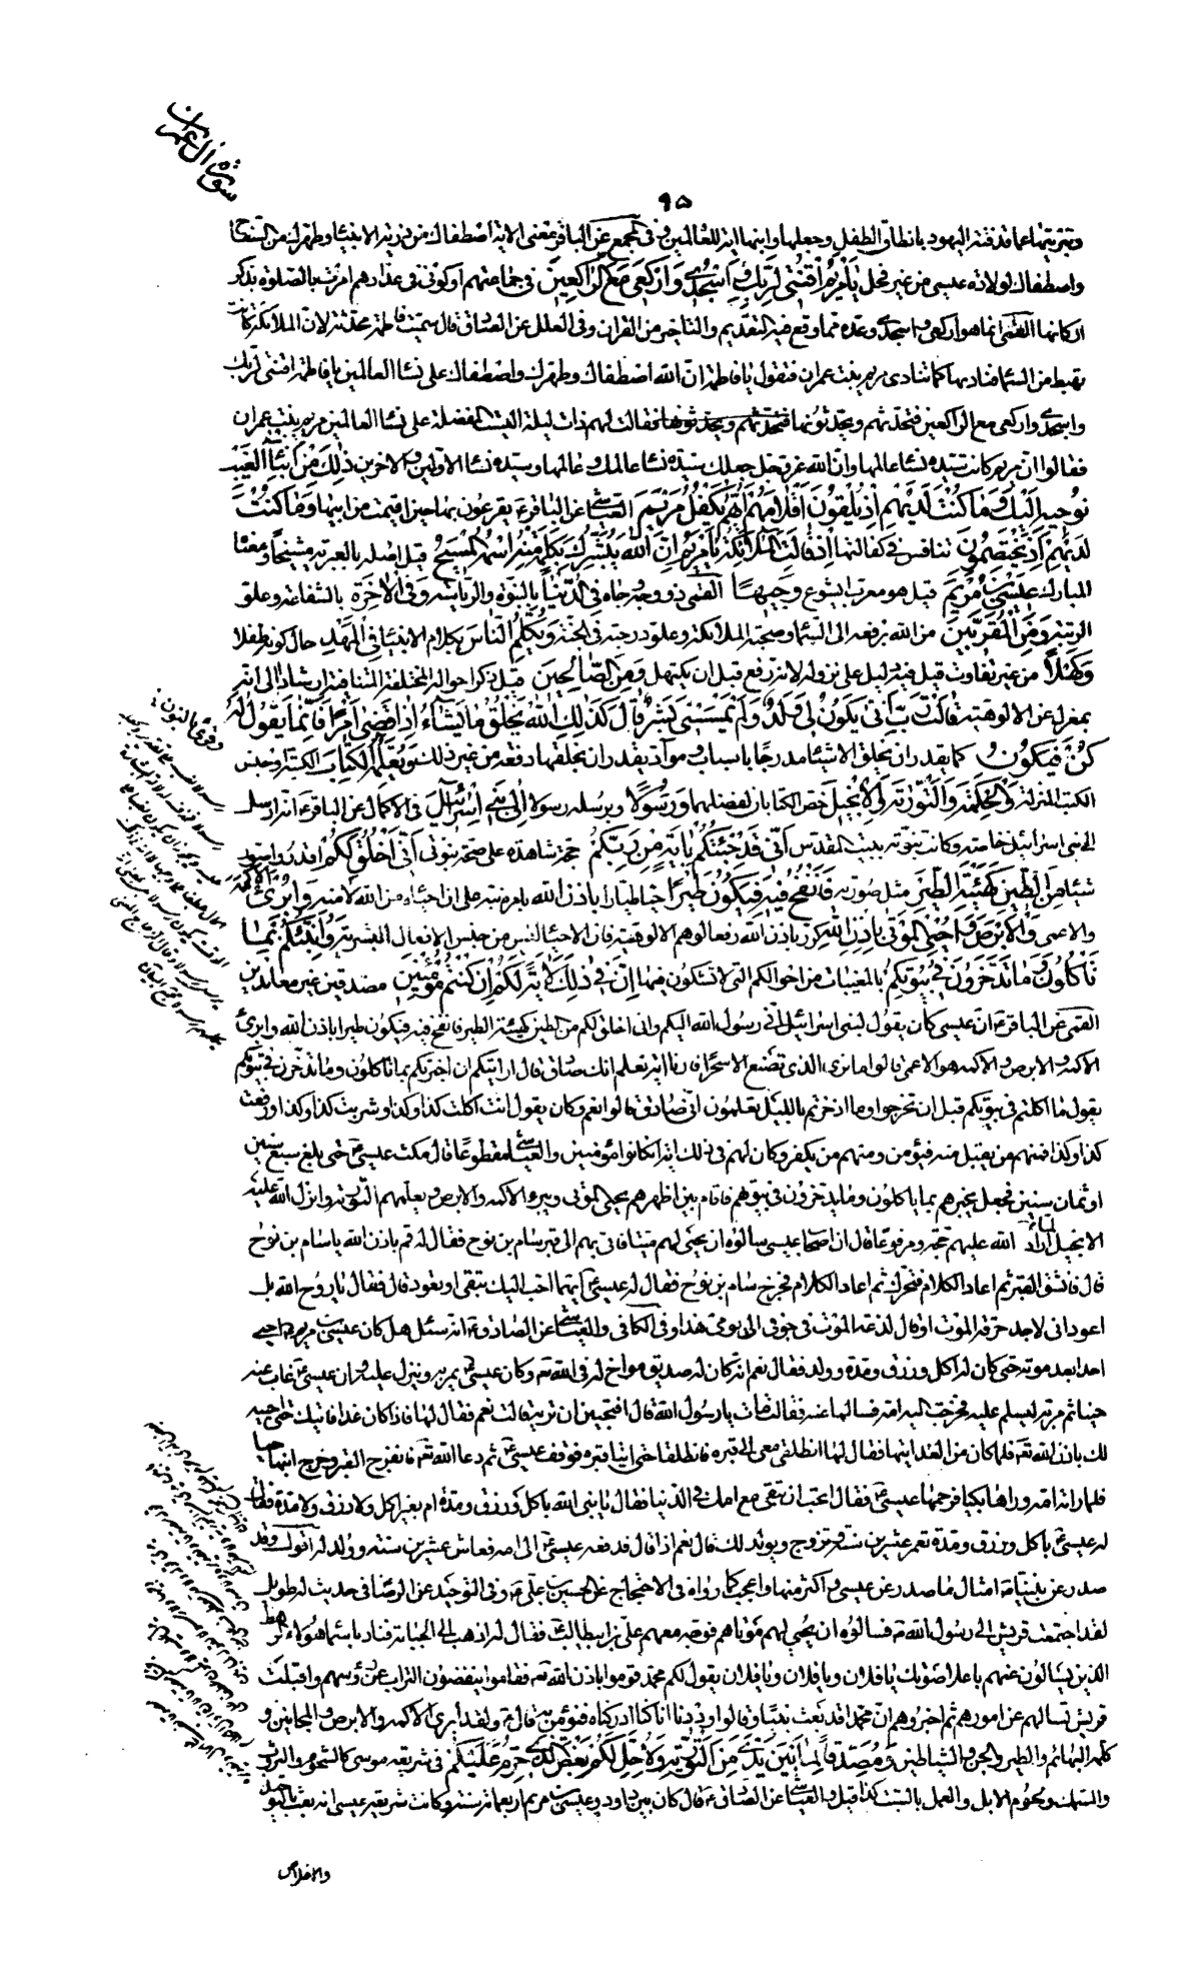 سورة آل عمران
٩٥
وتبرئتها عما قذفته اليهود بانطاق الطفل وجعلها وابنها اية للعالمين وفى المجمع عن الباقر ع معنى الاية اصطفاك من ذرية الانبياء وطهرك من السفاح
واصطفاك لولادة عيسى من غير فحل يا مريم اقنتى لربك واسجدى واركعى مع الراكعين فى جماعتهم او كونى فى عدادهم امرت بالصلوة بذكر
اركانها القمى انما هو اركعى واسجدى وعده مما وقع فيه التقديم والتاخير من القران وفى العلل عن الصادق قال سميت فاطمة محدثة لان الملائكة كانت
تهبط من السماء فتناديها كما تنادى مريم بنت عمران فتقول يا فاطمة ان الله اصطفاك وطهرك واصطفاك على نساء العالمين يا فاطمة اقنتى لربك
واسجدى واركعى مع الراكعين فتحدثهم ويحدثونها فقالت لهم ذات ليلة اليست المفضلة على نساء العالمين مريم بنت عمران
فقالوا ان مريم كانت سيدة نساء عالمها وان الله عز وجل جعلك سيدة نساء عالمك وعالمها وسيدة نساء الاولين والاخرين ذلك من انباء الغيب
نوحيه اليك وما كنت لديهم اذ يلقون اقلامهم ايهم يكفل مريم العياشى عن الباقر ع يقرعون بها حين ايتمت من ابيها وما كنت
لديهم اذ يختصمون تنافس فى كفالتها اذ قالت الملائكة يا مريم ان الله يبشرك بكلمة منه اسمه المسيح قيل اصله بالعبرية مشيحا ومعناه
المبارك عيسى بن مريم قيل هو معرب ايشوع وجيها القمى ذو وجه وجاه فى الدنيا بالنبوة والرياسة وفى الاخرة بالشفاعة وعلو
الرتبة ومن المقربين من الله برفعه الى السماء وصحبة الملائكة وعلو درجته فى الجنة ويكلم الناس بكلام الانبياء فى المهد حال كونه طفلا
وكهلا من غير تفاوت قيل فيه دليل على نزوله لانه رفع قبل ان يكتهل ومن الصالحين قيل ذكر احواله المختلفة المتنافية ارشاد الى انه
بمعزل عن الالوهية قالت رب انى يكون لى ولد ولم يمسسنى بشر قال كذلك الله يخلق ما يشاء اذا قضى امرا فانما يقول له
كن فيكون كما يقدر ان يخلق الاشياء مدرجا باسباب ومواد يقدر ان يخلقها دفعة من غير ذلك ويعلمه الكتاب الكتبة او جنس
الكتب المنزلة والحكمة والتورية والانجيل خص الكتابان لفضلهما ورسولا ويرسله رسولا الى بنى اسرائيل فى الاكمال عن الباقر ع انه ارسل
الى بنى اسرائيل خاصة وكانت نبوته ببيت المقدس انى قد جئتكم باية من ربكم حجة شاهدة على صحة نبوتى انى اخلق لكم اقدر واصور
شيئا من الطين كهيئة الطير مثل صورته فانفخ فيه فيكون طيرا حيا طيارا باذن الله بامره نبه على ان احياءه من الله لا منه وابرئ الاكمه
والاعمى والابرص واحيى الموتى باذن الله كرر باذن الله دفعا لوهم الالوهية فان الاحياء ليس من جنس الافعال البشرية وانبئكم بما
تاكلون وما تدخرون فى بيوتكم بالمغيبات من احوالكم التى لا تشكون فيها ان فى ذلك لاية لكم ان كنتم مؤمنين مصدقين غير معاندين
القمى عن الباقر ع ان عيسى كان يقول لبنى اسرائيل انى رسول الله اليكم وانى اخلق لكم من الطين كهيئة الطير فانفخ فيه فيكون طيرا باذن الله وابرئ
الاكمه والابرص والاكمه هو الاعمى قالوا ما نرى الذى تصنع الا سحرا فارنا اية نعلم انك صادق قال ارايتكم ان اخبرتكم بما تاكلون وما تدخرون فى بيوتكم
يقول ما اكلتم فى بيوتكم قبل ان تخرجوا وما ادخرتم بالليل تعلمون انى صادق قالوا نعم وكان يقول انت اكلت كذا وكذا وشربت كذا وكذا ورفعت
كذا وكذا فمنهم من يقبل منه فيؤمن ومنهم من يكفر وكان لهم فى ذلك اية ان كانوا مؤمنين والعياشى مقطوعا قال مكث عيسى ع حتى بلغ سبع سنين
او ثمان سنين فجعل يخبرهم بما ياكلون وما يدخرون فى بيوتهم فاقام بين اظهرهم يحيى الموتى ويبرئ الاكمه والابرص ويعلمهم التورية وانزل الله عليه
الانجيل لما اراد الله عليهم حجة ومرفوعا قال ان اصحاب عيسى سالوه ان يحيى لهم ميتا فاتى بهم الى قبر سام بن نوح فقال له قم باذن الله يا سام بن نوح
قال فانشق القبر ثم اعاد الكلام فتحرك ثم اعاد الكلام فخرج سام بن نوح فقال له عيسى ع ايهما احب اليك تبقى او تعود قال فقال يا روح الله بل
اعود انى لاجد حرقة الموت او قال لذعة الموت فى جوفى الى يومى هذا وفى الكافى والعياشى عن الصادق ع انه سئل هل كان عيسى بن مريم احيى
احدا بعد موته حتى كان له اكل ورزق ومدة وولد فقال نعم انه كان له صديق مواخ له فى الله تع وكان عيسى ع يمر به وينزل عليه وان عيسى ع غاب عنه
حينا ثم مر به ليسلم عليه فخرجت اليه امه فسالها عنه فقالت مات يا رسول الله قال افتحبين ان تريه قالت نعم فقال لها فاذا كان غدا فاتيك حتى احييه
لك باذن الله تع فلما كان من الغد اتيها فقال لها انطلقى معى الى قبره فانطلقا حتى اتيا قبره فوقف عيسى ع ثم دعا الله تع فانفرج القبر وخرج ابنها حيا
فلما راته امه وراها بكيا فرحمهما عيسى ع فقال اتحب ان تبقى مع امك فى الدنيا فقال يا نبى الله باكل ورزق ومدة ام بغير اكل ولا رزق ولا مدة فقال
له عيسى ع باكل ورزق ومدة تعمر عشرين سنة وتزوج ويولد لك قال نعم اذا قال فدفعه عيسى ع الى امه فعاش عشرين سنة وولد له اقول وقد
صدر عن نبينا ص امثال ما صدر عن عيسى ع واكثر منها واعجب كما رواه فى الاحتجاج عن الحسين بن على ع وفى التوحيد عن الرضا فى حديث له طويل
لقد اجتمعت قريش الى رسول الله ص فسالوه ان يحيى لهم موتاهم فوجه معهم على بن ابيطالب ع فقال له اذهب الى الجبانة فناد باسماء هؤلاء الرهط
الذين يسالون عنهم باعلا صوتك يا فلان ويا فلان ويا فلان يقول لكم محمد قوموا باذن الله تع فقاموا ينفضون التراب عن رؤسهم واقبلت
قريش تسالهم عن امورهم ثم اخبروهم ان محمدا قد بعث نبيا وقالوا وددنا انا كنا ادركناه فنؤمن به قال ع ولقد ابرئ الاكمه والابرص والمجانين و
كلمه البهائم والطير والجن والشياطين ومصدقا لما بين يدى من التورية ولاحل لكم بعض الذى حرم عليكم فى شريعة موسى كالشحوم والثروب
والسمك ولحوم الابل والعمل بالسبت كذا قيل والعياشى عن الصادق ع قال كان بين داود وعيسى بن مريم اربعمائة سنة وكانت شريعة عيسى انه بعث بالتوحيد
والاخلاص
وقرئ بالنون